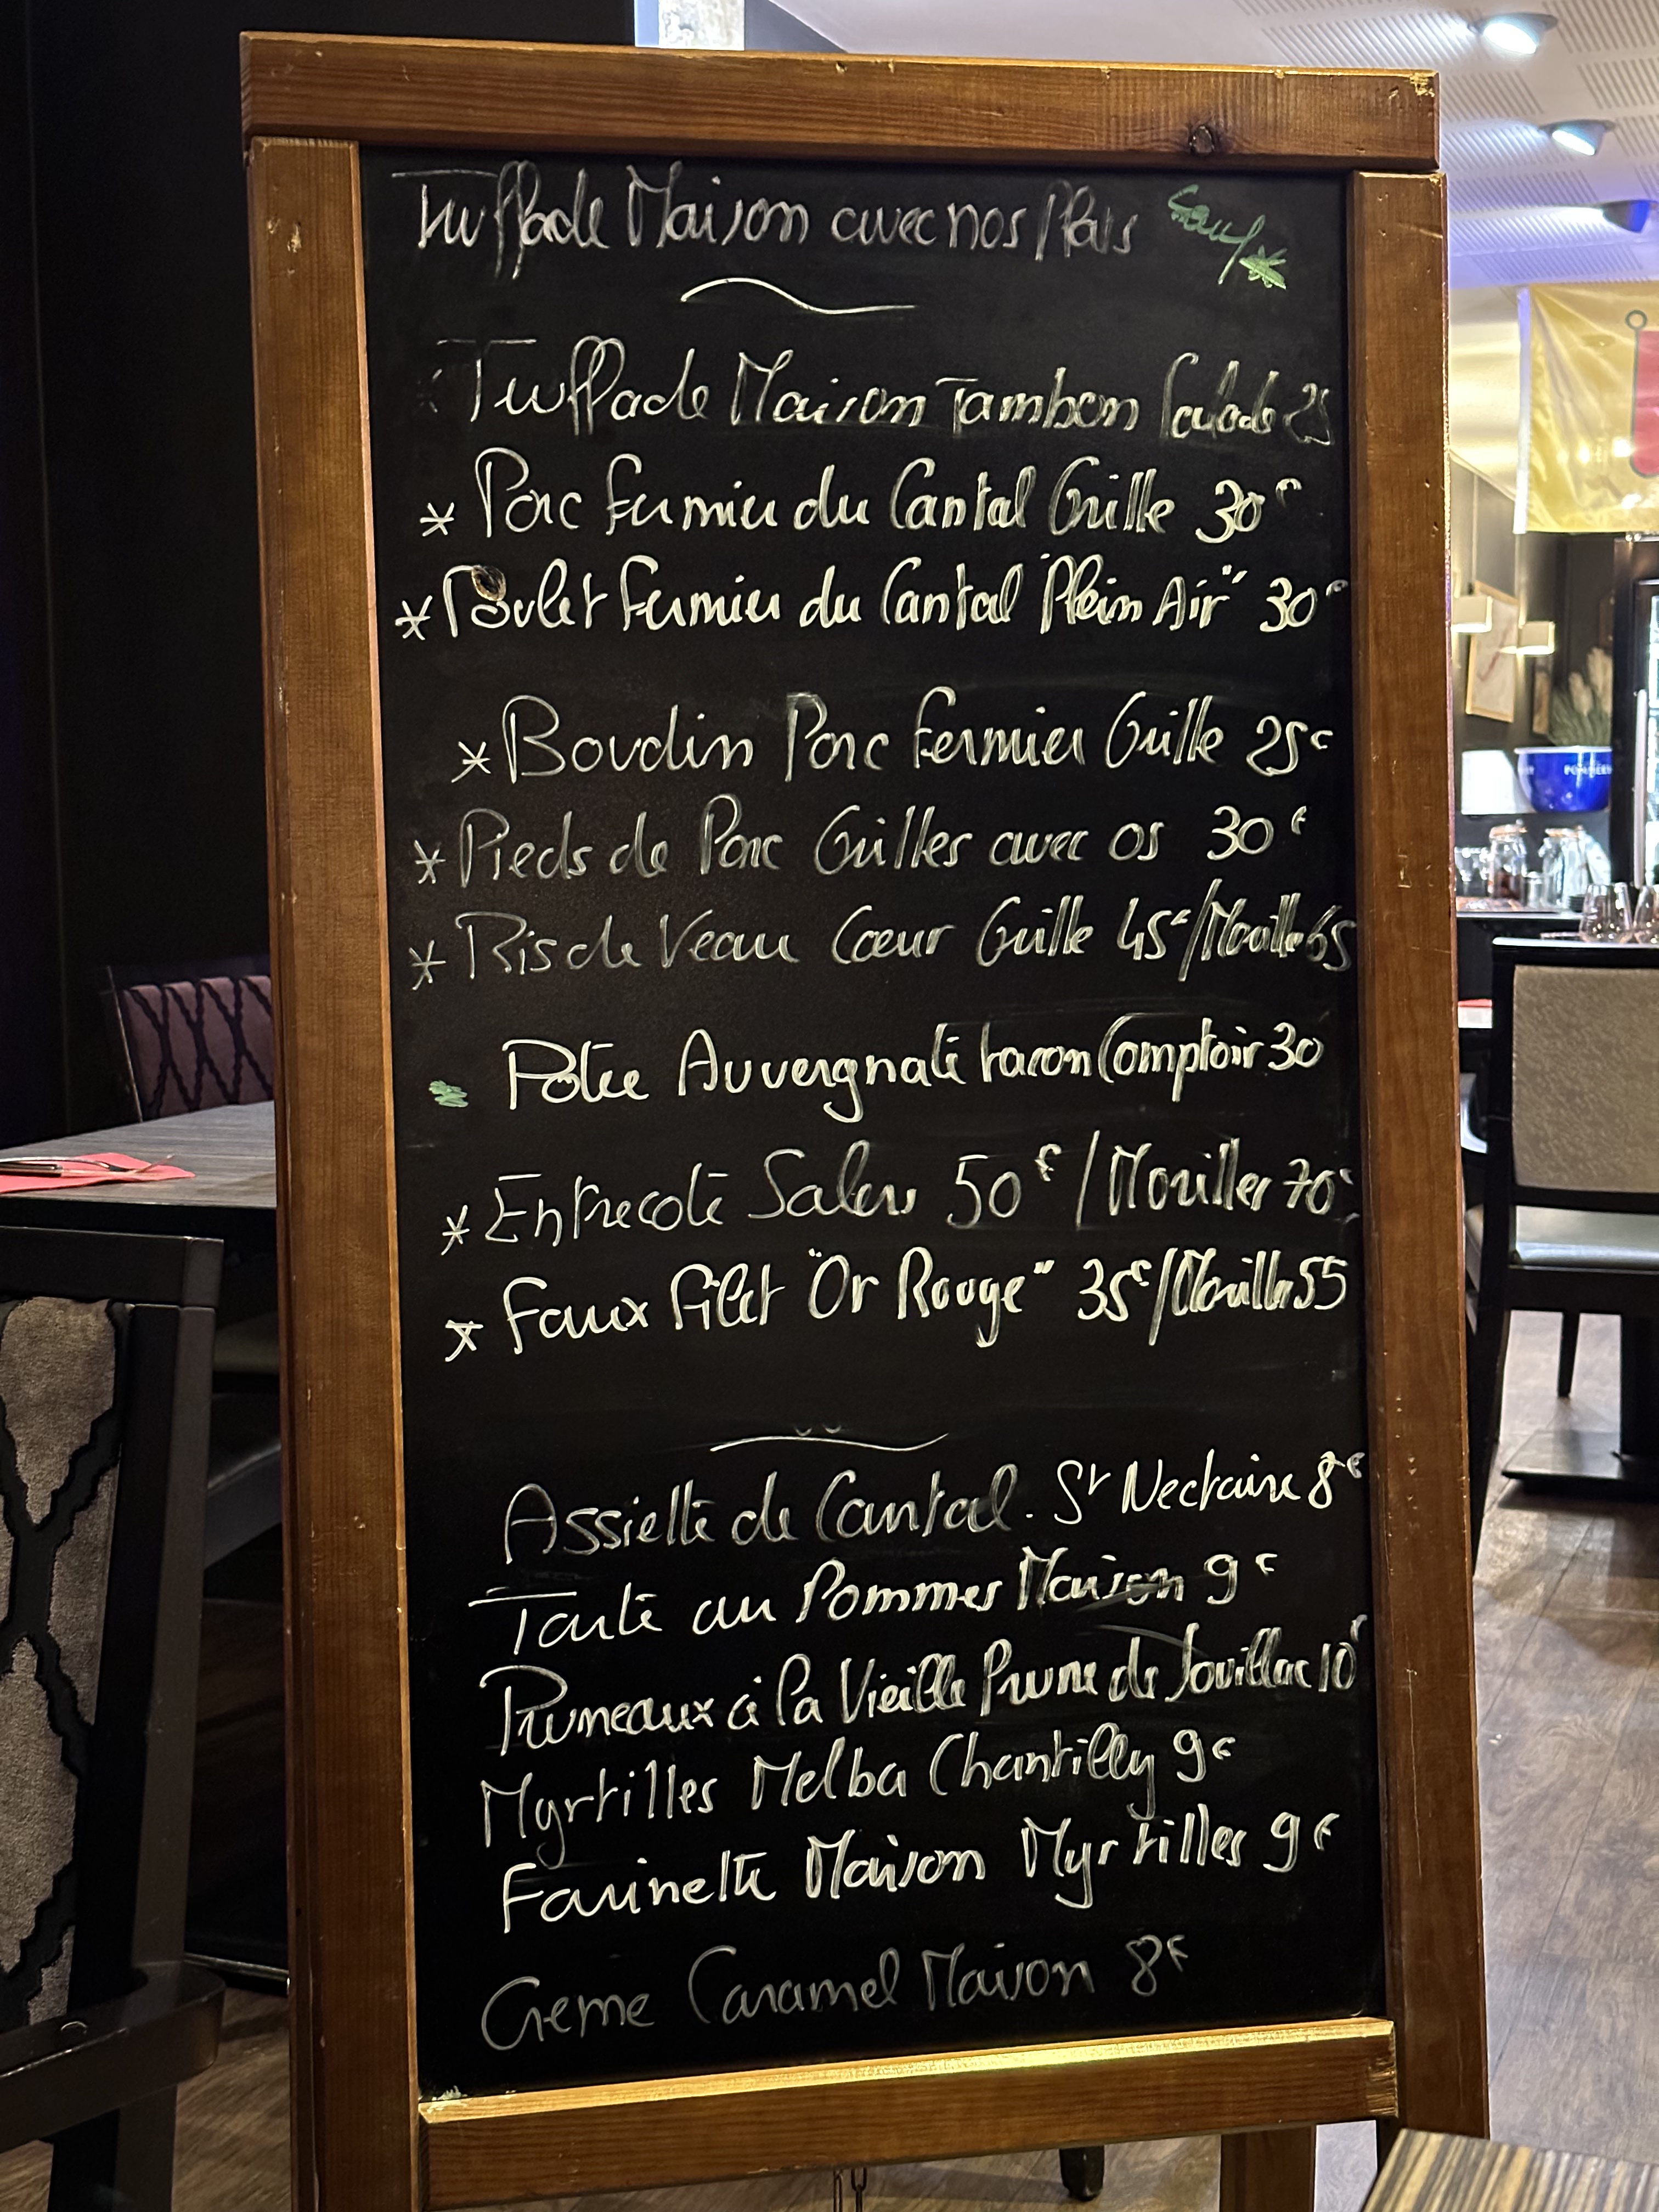 Truffade Maison avec nos Plats Sauf *
Truffade Maison Jambon Salade 25
* Porc Fermier du Cantal Grille 30€
* Poulet Fermier du Cantal "Plein Air" 30€
* Boudin Porc Fermier Grille 25€
* Pieds de Porc Grilles avec os 30€
* Ris de Veau Cœur Grille 45€/Morille 65
Potée Auvergnate Facon Comptoir 30
* Entrecote Salers 50€ / Morilles 70€
* Faux Filet "Or Rouge" 35€/Morilles 55
Assiette de Cantal. St Nectaire 8€
Tarte au Pommes Maison 9€
Pruneaux à la Vieille Prune de Souillac 10€
Myrtilles Melba Chantilly 9€
Farinette Maison Myrtilles 9€
Creme Caramel Maison 8€